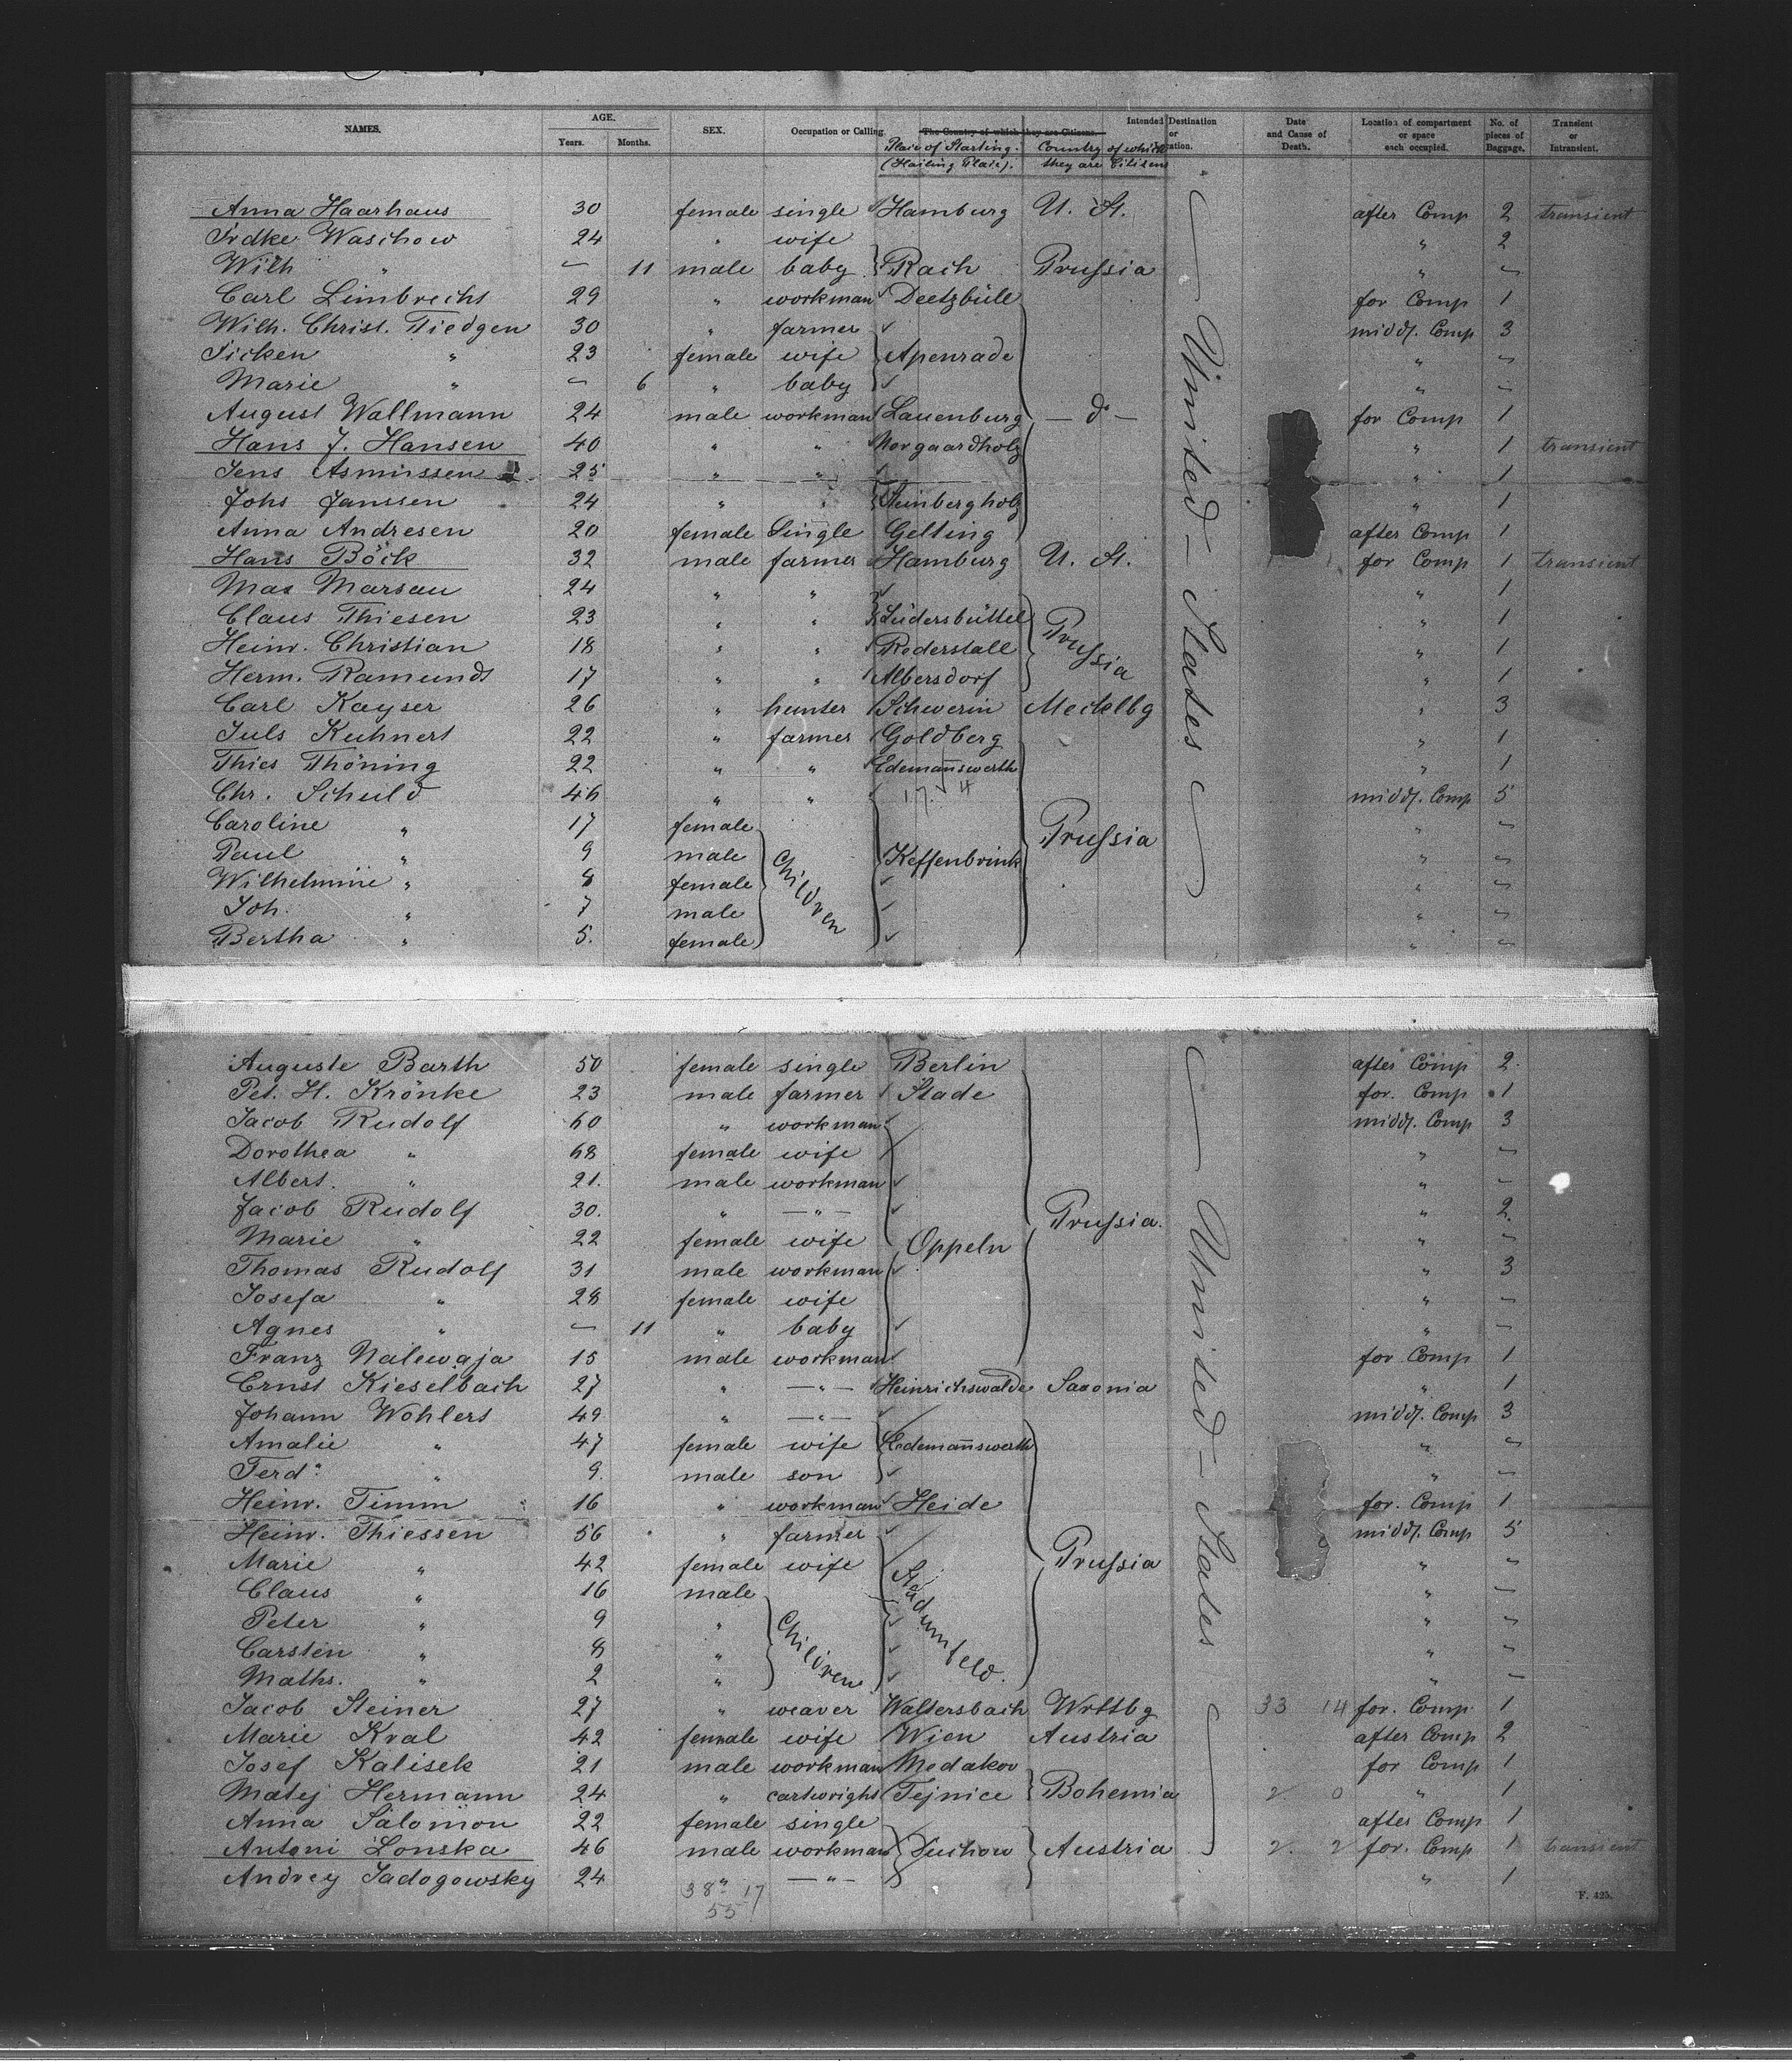 NAMES. AGE. Years. Months. SEX. Occupation or Calling The Country of which they are Citizens. Intended Destination or Location. Date and Cause of Death. Location of compartment or space each occupied. No. of pieces of Baggage. Transient or Intransient.
Place of Starting. (Hailing Place). Country of which they are Citizens
Anna Haarhaus 30 female single Hamburg U. St. after Comp 2 transient
Frdke Waschow 24 " wife " 2
Wilh " — 11 male baby Rach Prussia " —
Carl Limbrecht 29 " workman Deetzbüll for Comp 1
Wilh. Christ. Tiedgen 30 " farmer middl. Comp 3
Sicken " 23 female wife Apenrade " —
Marie " — 6 " baby " —
August Wallmann 24 male workman Lauenburg — do — for Comp 1
Hans J. Hansen 40 " " Norgaardholz " 1 transient
Jens Asmussen 25 " " " 1
Johs Janssen 24 " " Steinbergholz " 1
Anna Andresen 20 female Single Gelting after Comp 1
Hans Böck 32 male farmer Hamburg U. St. for Comp 1 transient
Max Marsau 24 " " " 1
Claus Thiesen 23 " " Lüdersbüttel " 1
Heinr. Christian 18 " " Rederstall Prussia " 1
Herm. Ramundt 17 " " Albersdorf " 1
Carl Kayser 26 " hunter Schwerin Mecklbg " 3
Juls Kuhnert 22 " farmer Goldberg " 1
Thies Thöning 22 " " Edemannswerth " 1
Chr. Schuld 46 " " 17. 4 middl. Comp 5
Caroline " 17 female " —
Paul " 9 male Children Keffenbrink Prussia " —
Wilhelmine " 8 female " —
Joh. " 7 male " —
Bertha " 5. female " —
United States
Auguste Barth 50 female single Berlin after Comp 2.
Pet. H. Krönke 23 male farmer Stade for. Comp 1
Jacob Rudolf 60 " workman middl. Comp 3
Dorothea " 68 female wife " —
Albert. " 21. male workman " —
Jacob Rudolf 30. " — " — Prussia. " 2.
Marie " 22 female wife Oppeln " —
Thomas Rudolf 31 male workman " 3
Josefa " 28 female wife " —
Agnes " — 11 " baby " —
Franz Nalewaja 15 male workman for Comp 1
Ernst Kieselbach 27 " — " — Heinrichswalde Saxonia " 1
Johann Wohlers 49 " — " — middl. Comp 3
Amalie " 47 female wife Hedemannswerth " —
Ferd. " 9. male son " —
Heinr. Timm 16 " workman Heide for. Comp 1
Heinr. Thiessen 56 " farmer middl. Comp 5
Marie " 42 female wife Prussia " "
Claus " 16 male " —
Peter " 9 " Children " —
Carsten " 8 " " —
Maths. " 2 " " —
United States
Jacob Steiner 27 " weaver Waltersbach Wrttbg 33 14 for. Comp 1
Marie Kral 42 female wife Wien Austria after Comp 2
Josef Kalisek 21 male workman Medakov for Comp 1
Matej Hermann 24 " cartwright Tejnice Bohemia 2 0 " 1
Anna Salomon 22 female single after Comp 1
Antoni Lonska 46 male workman Suchow Austria 2. 2 for. Comp 1 transient
Andrey Sadogowsky 24 " — " — " 1
38 17
55
F. 425.